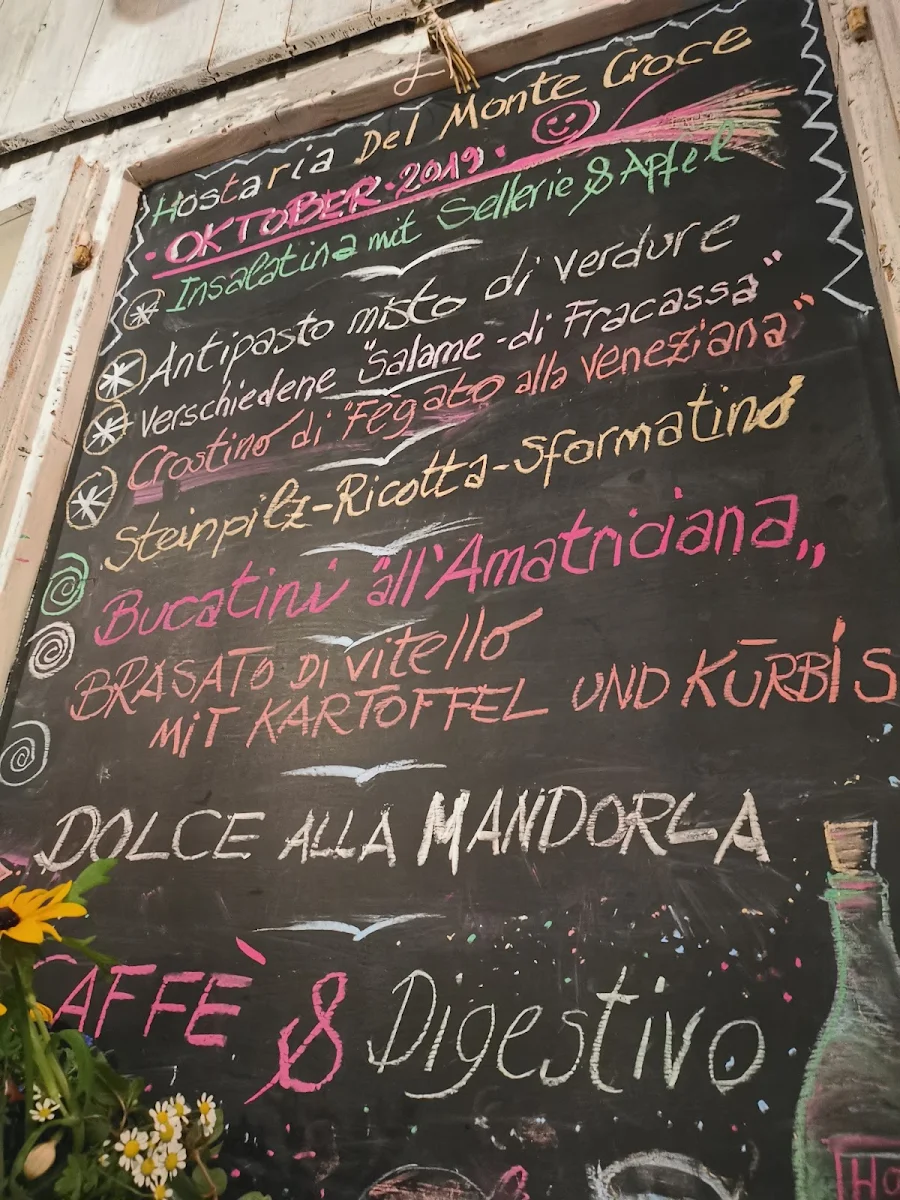 Hostaria Del Monte Croce
· OKTOBER · 2019 ·
Insalatina mit Sellerie & Apfel
Antipasto misto di verdure
Verschiedene "Salame di Fracassa"
Crostino di "Fegato alla Veneziana"
Steinpilz-Ricotta-Sformatino
Bucatini "all'Amatriciana"
BRASATO Di Vitello
MiT KARTOFFEL UND KÜRBIS
DOLCE ALLA MANDORLA
CAFFÈ & Digestivo
Ho